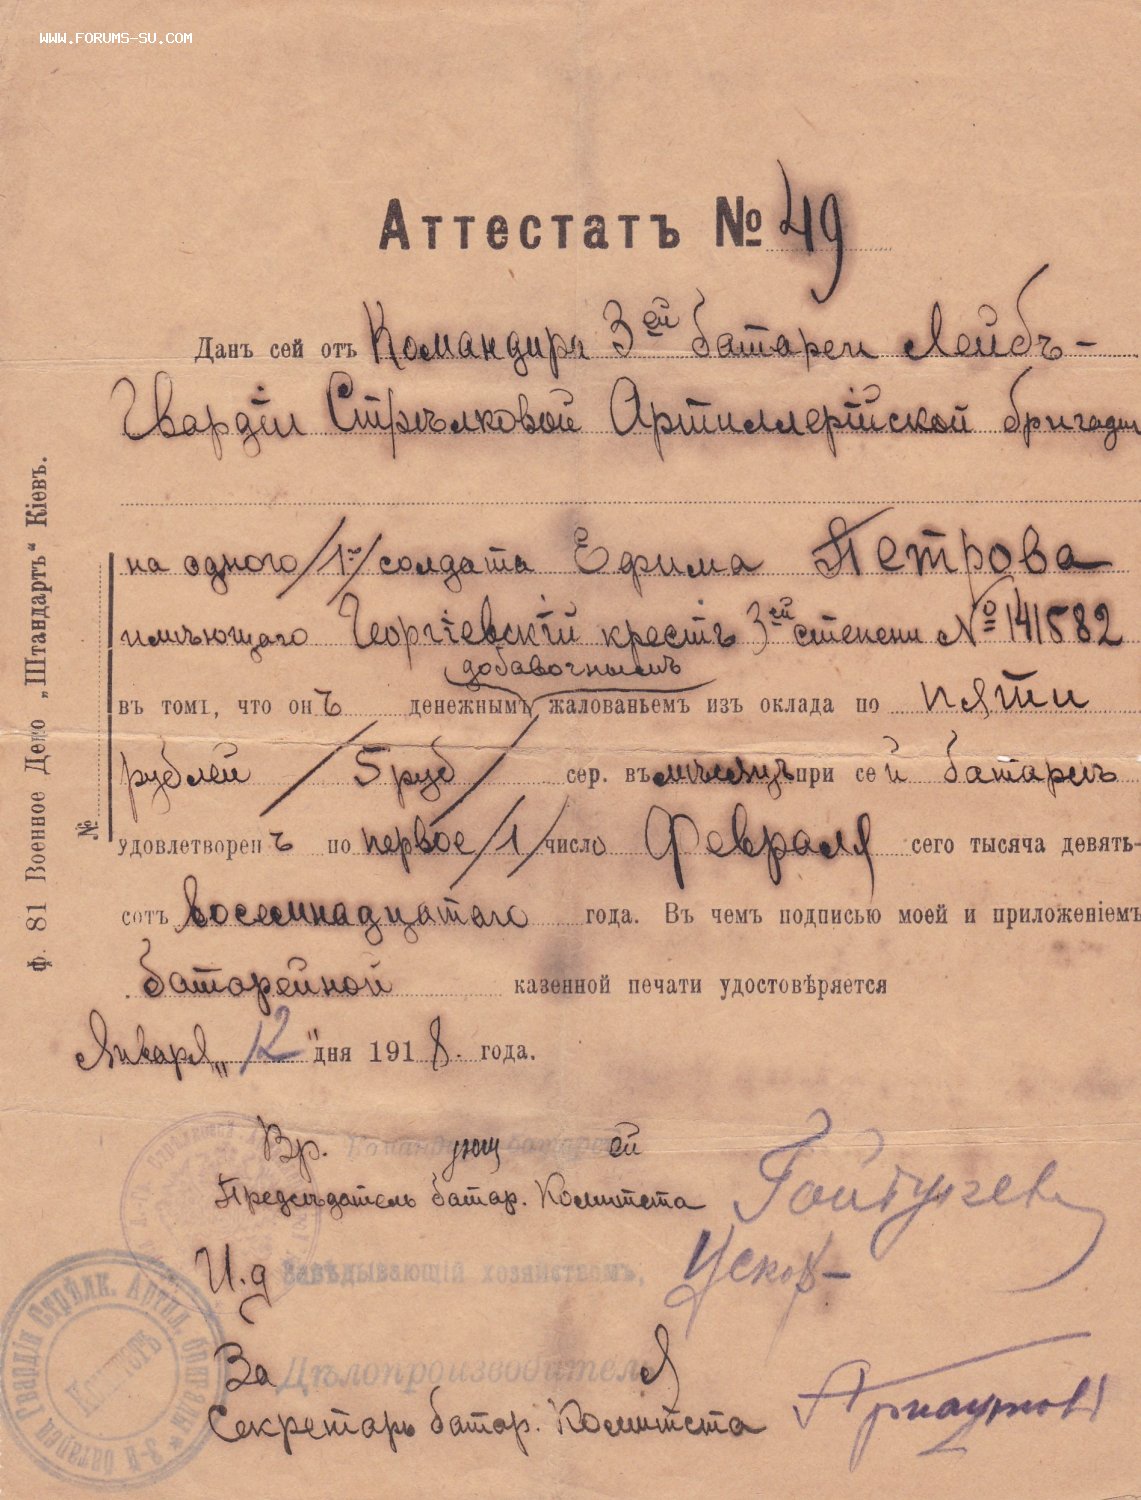 WWW.FORUMS-SU.COM
Аттестатъ № 49
Данъ сей отъ Командира 3ей батареи Лейбъ-
Гвардіи Стрѣлковой Артиллерійской бригады
на одного /1го/ солдата Ефима Петрова
имѣющаго Георгіевскій крестъ 3ей степени № 141582
добавочнымъ
въ томъ, что онъ денежнымъ жалованьемъ изъ оклада по пяти
рублей /5 руб/ сер. въ мѣсяцъ при сей батареѣ
удовлетворенъ по первое /1/ число Февраля сего тысяча девять-
сотъ восемнадцатаго года. Въ чемъ подписью моей и приложеніемъ
батарейной казенной печати удостовѣряется
Января „12" дня 1918. года.
Вр. Командующ батареей
Предсѣдатель батар. Комитета
И.д Завѣдывающій хозяйствомъ, Усковъ
За Дѣлопроизводителя
Секретарь батар. Комитета
№
Ф. 81 Военное Депо „Штандартъ" Кіевъ.
3-я батарея Гвардіи Стрѣлк. Артил. бригады
Комитетъ